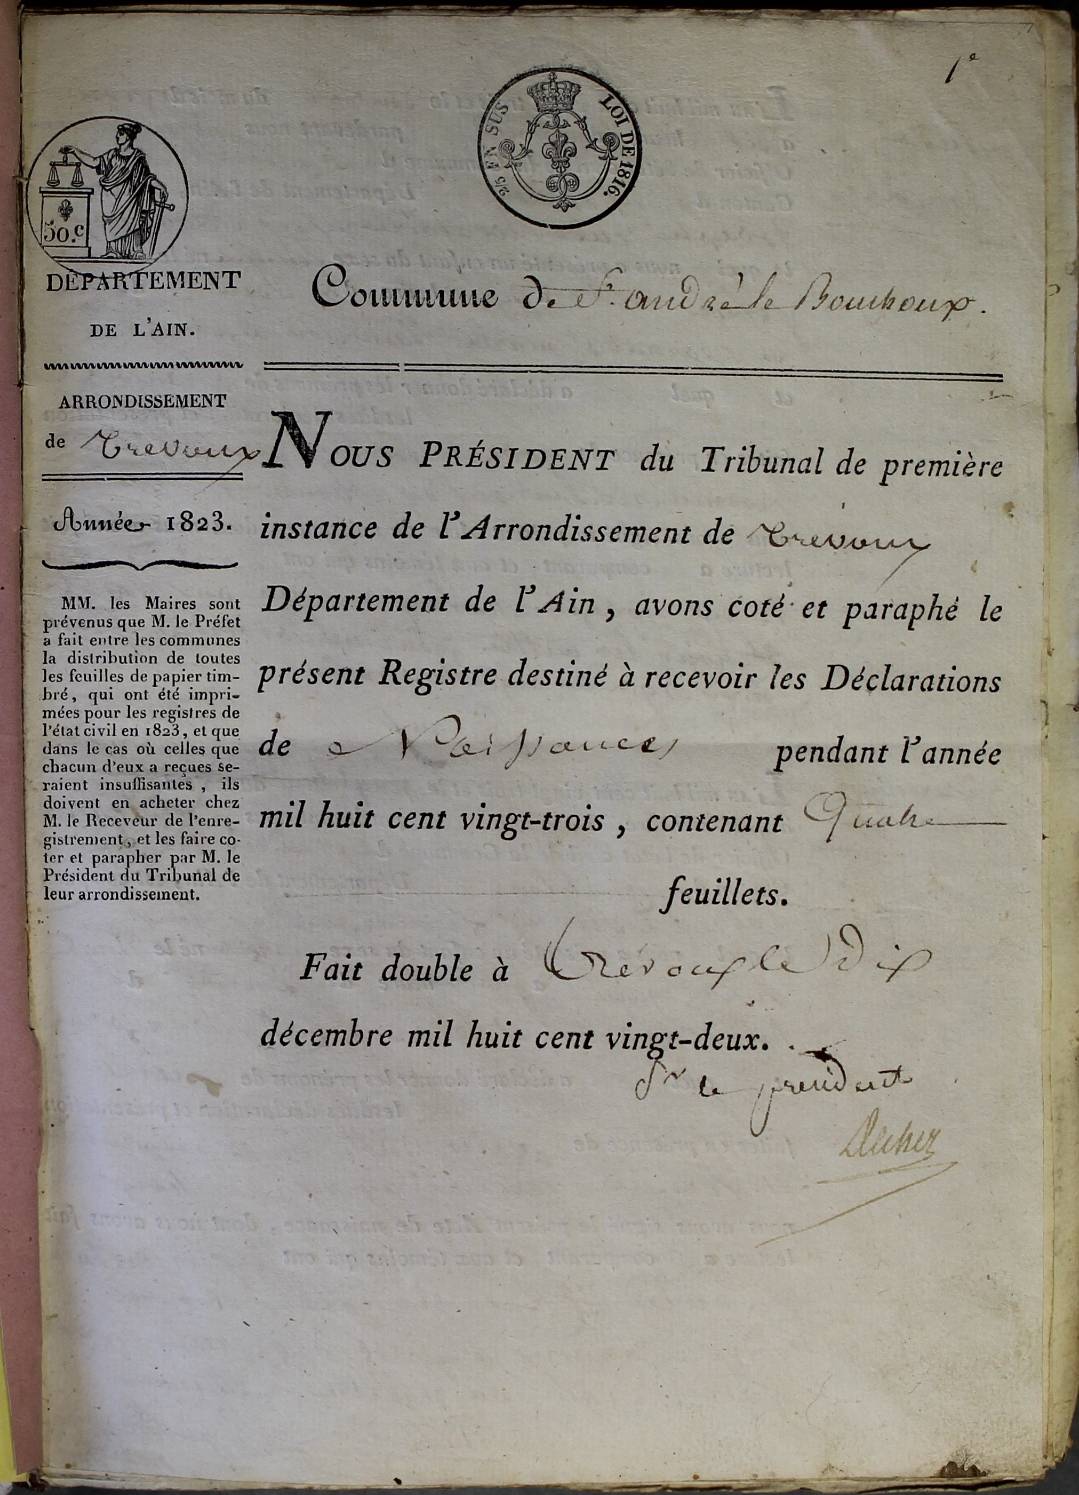 1e
2/5 EN SUS
LOI DE 1816.
50.c
DÉPARTEMENT
DE L'AIN.
Commune de St. andré le Bouchoux.
ARRONDISSEMENT
de Trevoux
Année 1823.
MM. les Maires sont
prévenus que M. le Préfet
a fait entre les communes
la distribution de toutes
les feuilles de papier tim-
bré, qui ont été impri-
mées pour les registres de
l'état civil en 1823, et que
dans le cas où celles que
chacun d'eux a reçues se-
raient insuffisantes, ils
doivent en acheter chez
M. le Receveur de l'enre-
gistrement, et les faire co-
ter et parapher par M. le
Président du Tribunal de
leur arrondissement.
NOUS PRÉSIDENT du Tribunal de première
instance de l'Arrondissement de Trevoux
Département de l'Ain, avons coté et paraphé le
présent Registre destiné à recevoir les Déclarations
de Naissances pendant l'année
mil huit cent vingt-trois, contenant Quatre
feuillets.
Fait double à Trevoux le dix
décembre mil huit cent vingt-deux.
Pr le president